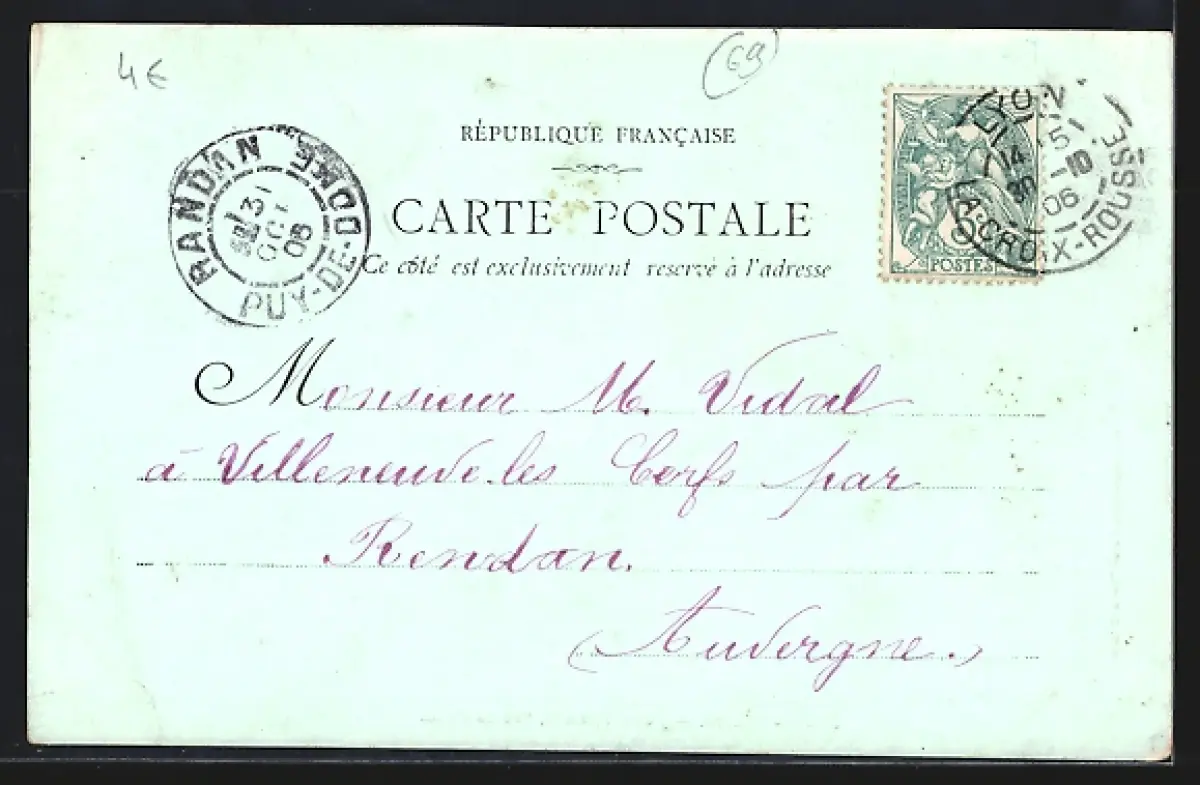 4€
69
RÉPUBLIQUE FRANÇAISE
CARTE POSTALE
Ce côté est exclusivement reservé à l'adresse
RANDAN
31
OCT
PUY-DE-DOME
LYON
LA-CROIX-ROUSSE
15
-10
06
POSTES
Monsieur M. Vidal
à Villeneuve les Cerfs par
Rendan.
(Auvergne.)